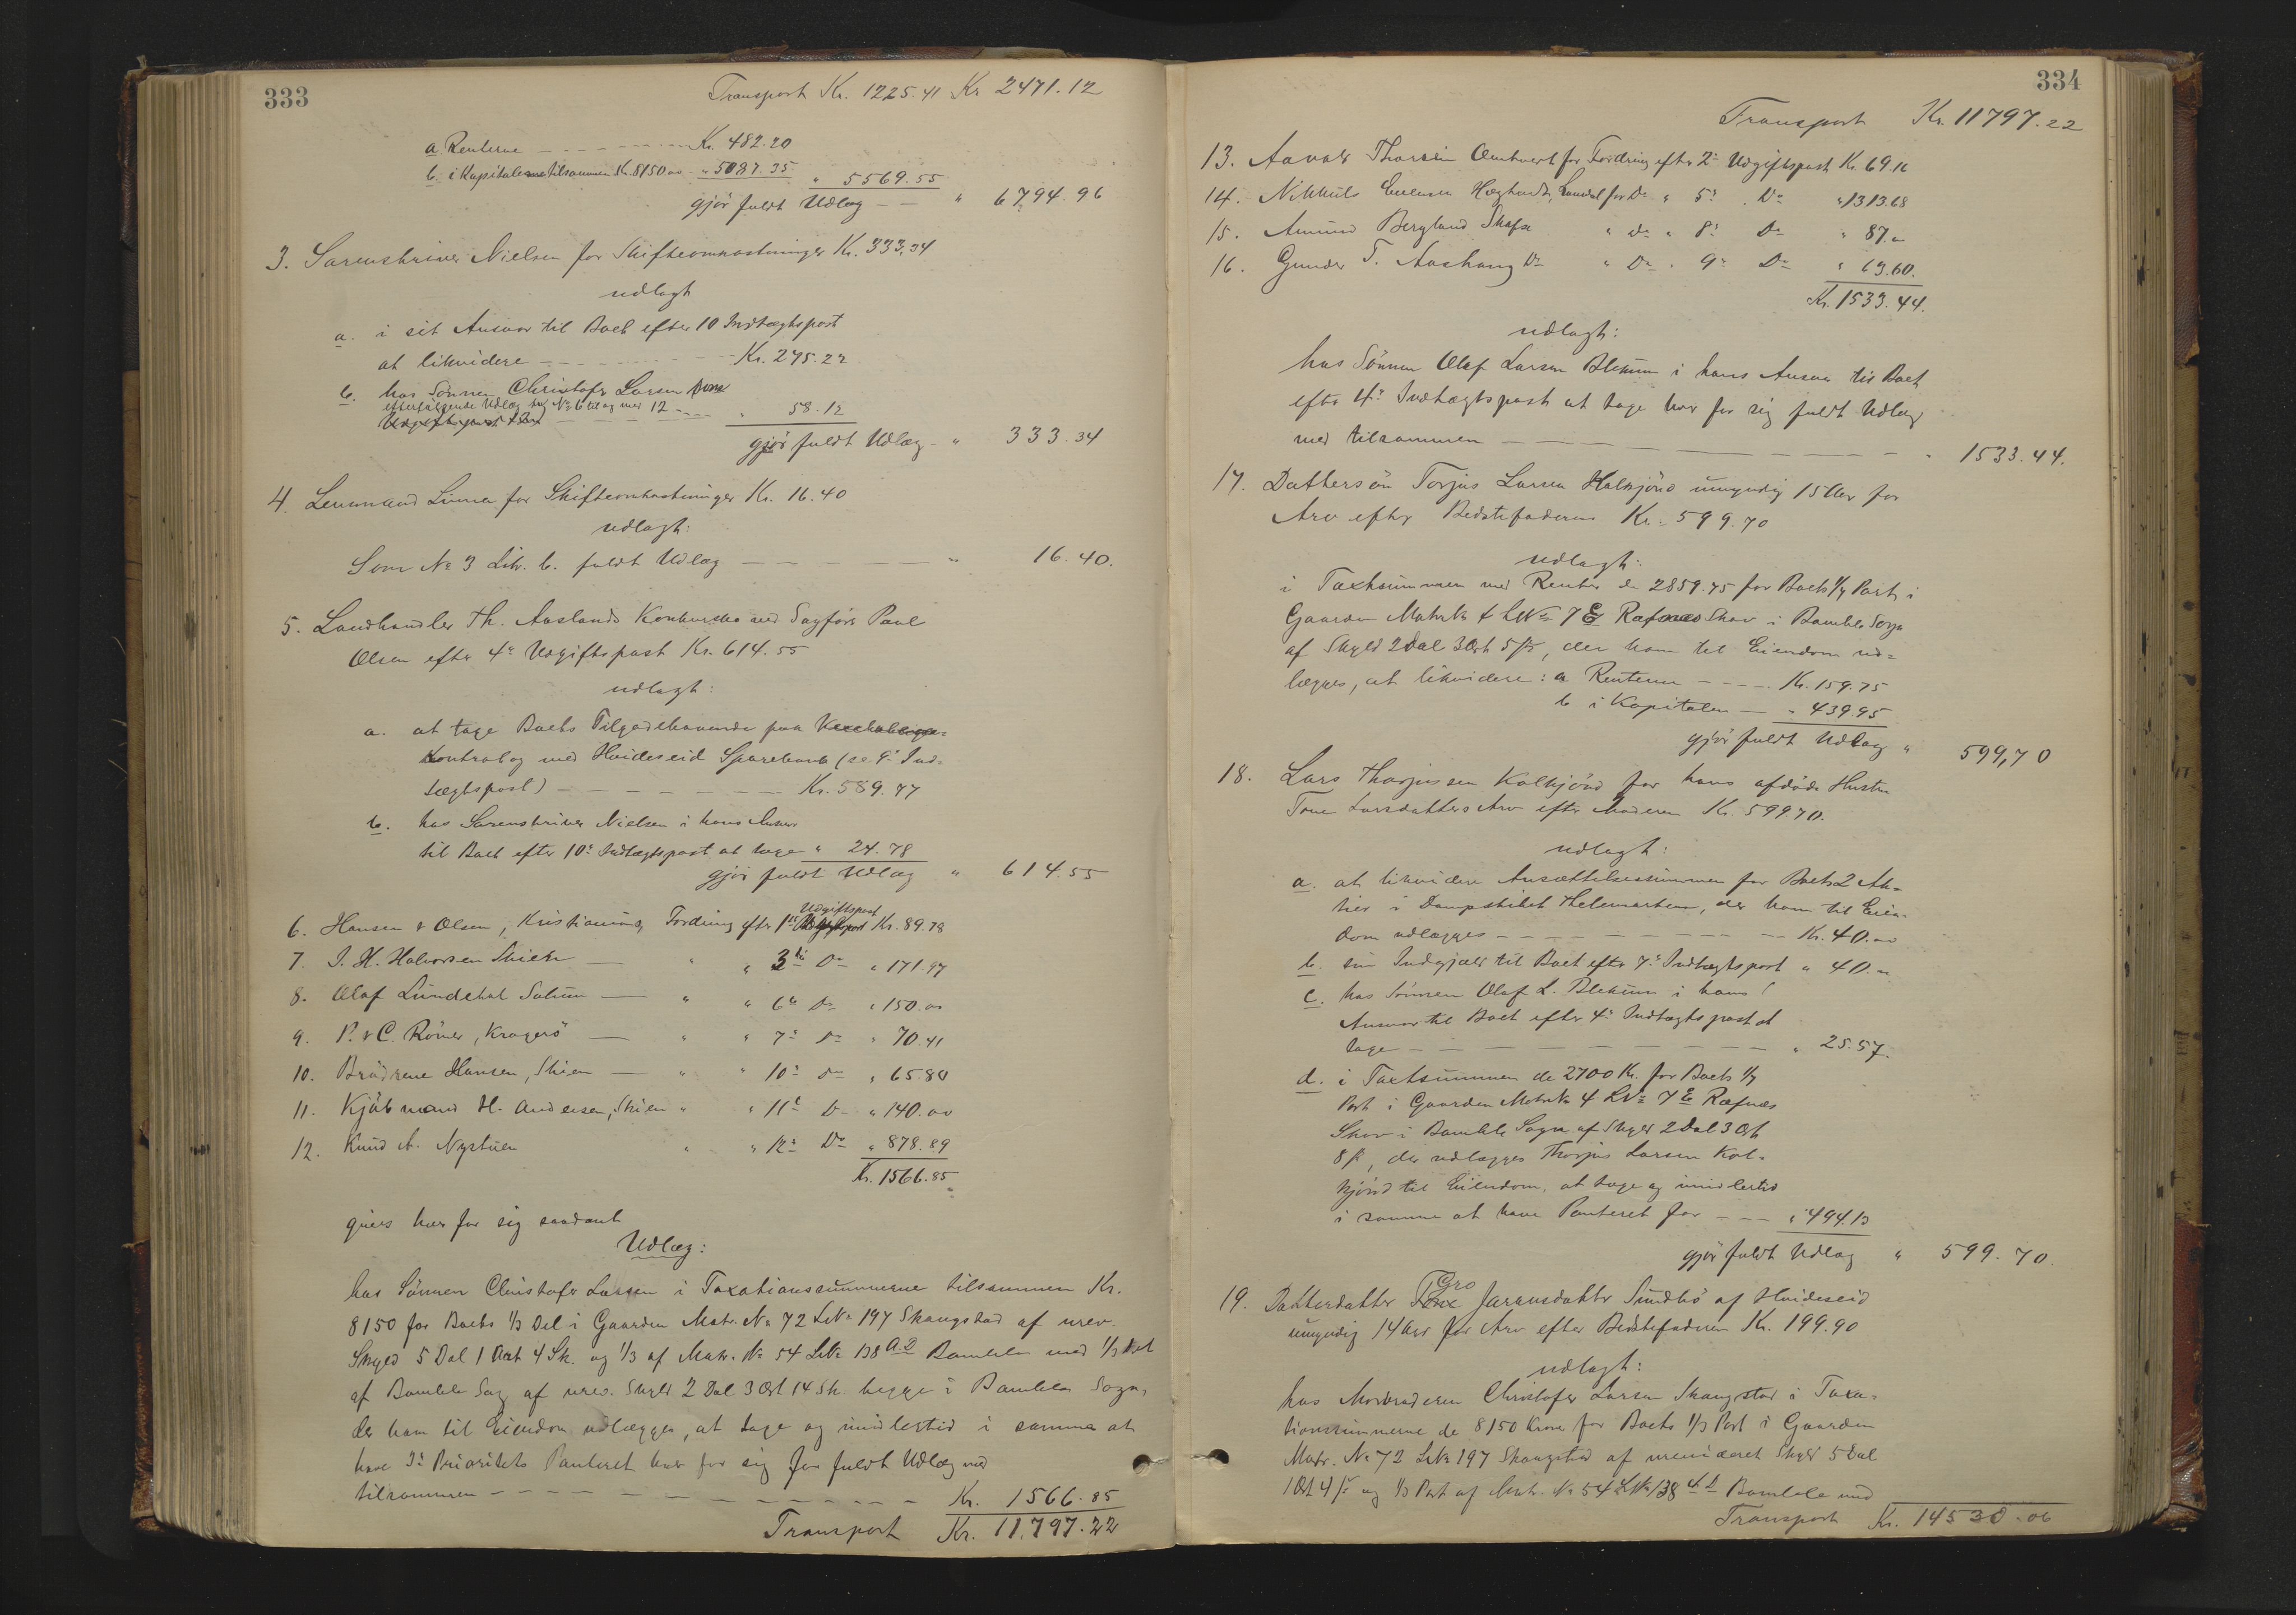 333
Transport Kr. 1225.41 Kr. 2471.12
a. Renterne Kr. 482.20
b. i Kapitalerne tilsammen Kr. 8150.00 " 5087.35
" 5569.55
gjør fuldt Udlæg " 6794.96
3. Sorenskriver Nielsen for Skifteomkostninger Kr. 333,34
udlagt
a. i sit Ansvar til Boet efter 10 Indtægtspost
at likvidere Kr. 275.22
b. hos Sønnen Christofer Larsen
efterfølgende Udlæg No 6 til og med 12 " 58.12
gjør fuldt Udlæg " 333.34
4. Lensmand Linnea for Skifteomkostninger Kr. 16.40
udlagt:
Som No 3 Litr. b. fuldt Udlæg " 16.40.
5. Landhandler Th. Aaslands Konkursbo ved Sagfører Paul
Olsen efter 4de Udgiftspost Kr. 614.55
udlagt:
a. at tage Boets Tilgodehavende paa
Kontrabog med Hvideseid Sparebank (se 9de Ind-
tægtspost) Kr. 589.77
b. hos Sorenskriver Nielsen i hans Ansvar
til Boet efter 10de Indtægtspost at tage " 24.78
gjør fuldt Udlæg " 614.55
6. Hansen & Olsen, Kristiania, Fordring efter 1ste Udgiftspost Kr. 89.78
7. J. H. Halvorsen Skien " " 3die Do " 171.97
8. Olaf Lundehal Solum " " 6te Do " 150.00
9. P. & C. Römer, Kragerö " " 7de Do " 70.41
10. Brødrene Hansen, Skien " " 10de Do " 65.80
11. Kjøbmand H. Andersen, Skien " " 11te Do " 140.00
12. Knud A. Nystuen " " 12te Do " 878.89
Kr. 1566.85
gives hver for sig saadant
Udlæg:
hos Sønnen Christofer Larsen i Taxationssummerne tilsammen Kr.
8150 for Boets 1/3 Del i Gaarden Matr. No 72 LNo 197 Skaugstad af urev.
Skyld 5 Dal 1 Ort 4 Sk. og 1/3 af Matr. No 54 LNo 138 a.b Bamble med 1/3 Part
af Bamble Sag af urev. Skyld 2 Dal 3 Ort 14 Sk. begge i Bamble Sogn,
der ham til Eiendom udlægges, at tage og imidlertid i samme at
have 3die Prioritets Panteret hver for sig for fuldt Udlæg med
tilsammen Kr. 1566.85
Transport Kr. 11,797.22
334
Transport Kr. 11797.22
13. Aavald Thorsen Omtvert for Fordring efter 2de Udgiftspost Kr. 69.16
14. Nikkuls Evensen Hægtvedt, for Do " 5te Do " 1313.68
15. Amund Bergland Skafse " Do " 8de Do " 87.00
16. Gunder T. Aashaug Do " Do " 9de Do " 63.60.
Kr. 1533.44.
udlagt:
hos Sønnen Olaf Larsen Blekum i hans Ansvar til Boet
efter 4de Indtægtspost at tage hver for sig fuldt Udlæg
med tilsammen " 1533.44.
17. Dattersøn Torjus Larsen Kalkjönd umyndig 15 Aar for
Arv efter Bedstefaderen Kr. 599.70
udlagt:
i Taxtsummen med Renter de 2859.75 for Boets 1/3 Part i
Gaarden Matr No 4 LNo 7 E Rafnes Skov i Bamble Sogn
af Skyld 2 Dal 3 Ort 8 ß, der ham til Eiendom ud-
lægges, at likvidere: a Renterne Kr. 159.75
b i Kapitalen " 439.95
gjør fuldt Udlæg " 599,70
18. Lars Thorjussen Kalkjönd for hans afdøde Hustru
Tone Larsdatters Arv efter Moderen Kr. 599.70.
udlagt:
a. at likvidere Ansættelsessummen for Boets 2 Ak-
tier i Dampskibet Thelemarken, der ham til Eien-
dom udlægges Kr. 40.00
b. sin Indgjæld til Boet efter 7de Indtægtspost " 40.00
c. hos Sønnen Olaf L. Blekum i hans
Ansvar til Boet efter 4de Indtægtspost at
tage " 25.57.
d. i Taxtsummen de 2700 Kr. for Boets 1/3
Part i Gaarden Matr No 4 LNo 7 E Rafnes
Skov i Bamble Sogn af Skyld 2 Dal 3 Ort
8 ß, der udlægges Thorjus Larsen Kal-
kjönd til Eiendom, at tage og imidlertid
i samme at have Panteret for " 494.13
gjør fuldt Udlæg " 599.70.
19. Datterdatter Gro Jørunsdatter Sundbö af Hvideseid
umyndig 14 Aar for Arv efter Bedstefaderen Kr. 199.90
udlagt:
hos Morbroderen Christofer Larsen Skaugstad i Taxa-
tionssummerne de 8150 Kroner for Boets 1/3 Part i Gaarden
Matr. No 72 LNo 197 Skaugstad af urevideret Skyld 5 Dal
1 Ort 4 ß og 1/3 Part af Matr. No 54 LNo 138 a b Bamble med
Transport Kr. 14530.06